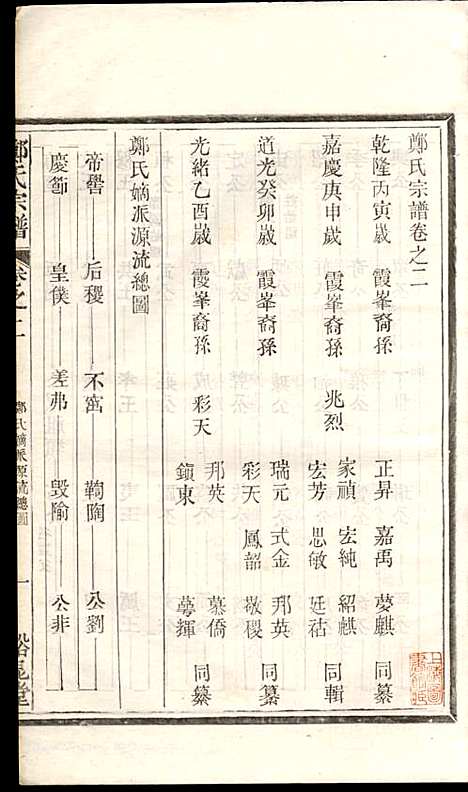 鄭氏宗譜卷之二
乾隆丙寅歲 霞峯裔孫 正昇 嘉禹 夢麒 同纂
嘉慶庚申歲 霞峯裔孫 兆烈 家禎 宏純 紹麒 宏芳 思敏 廷祜 同輯
道光癸卯歲 霞峯裔孫 瑞元 式金 邦英 彩天 鳳韶 敬稷 同纂
光緒乙酉歲 霞峯裔孫 彩天 邦英 慕僑 鎮東 夢輝 同纂
鄭氏嫡派源流總圖
帝嚳 后稷 不窋 鞠陶 公劉
慶節 皇僕 差弗 毀隃 公非
鄭氏宗譜 卷之二 鄭氏嫡派源流總圖 一